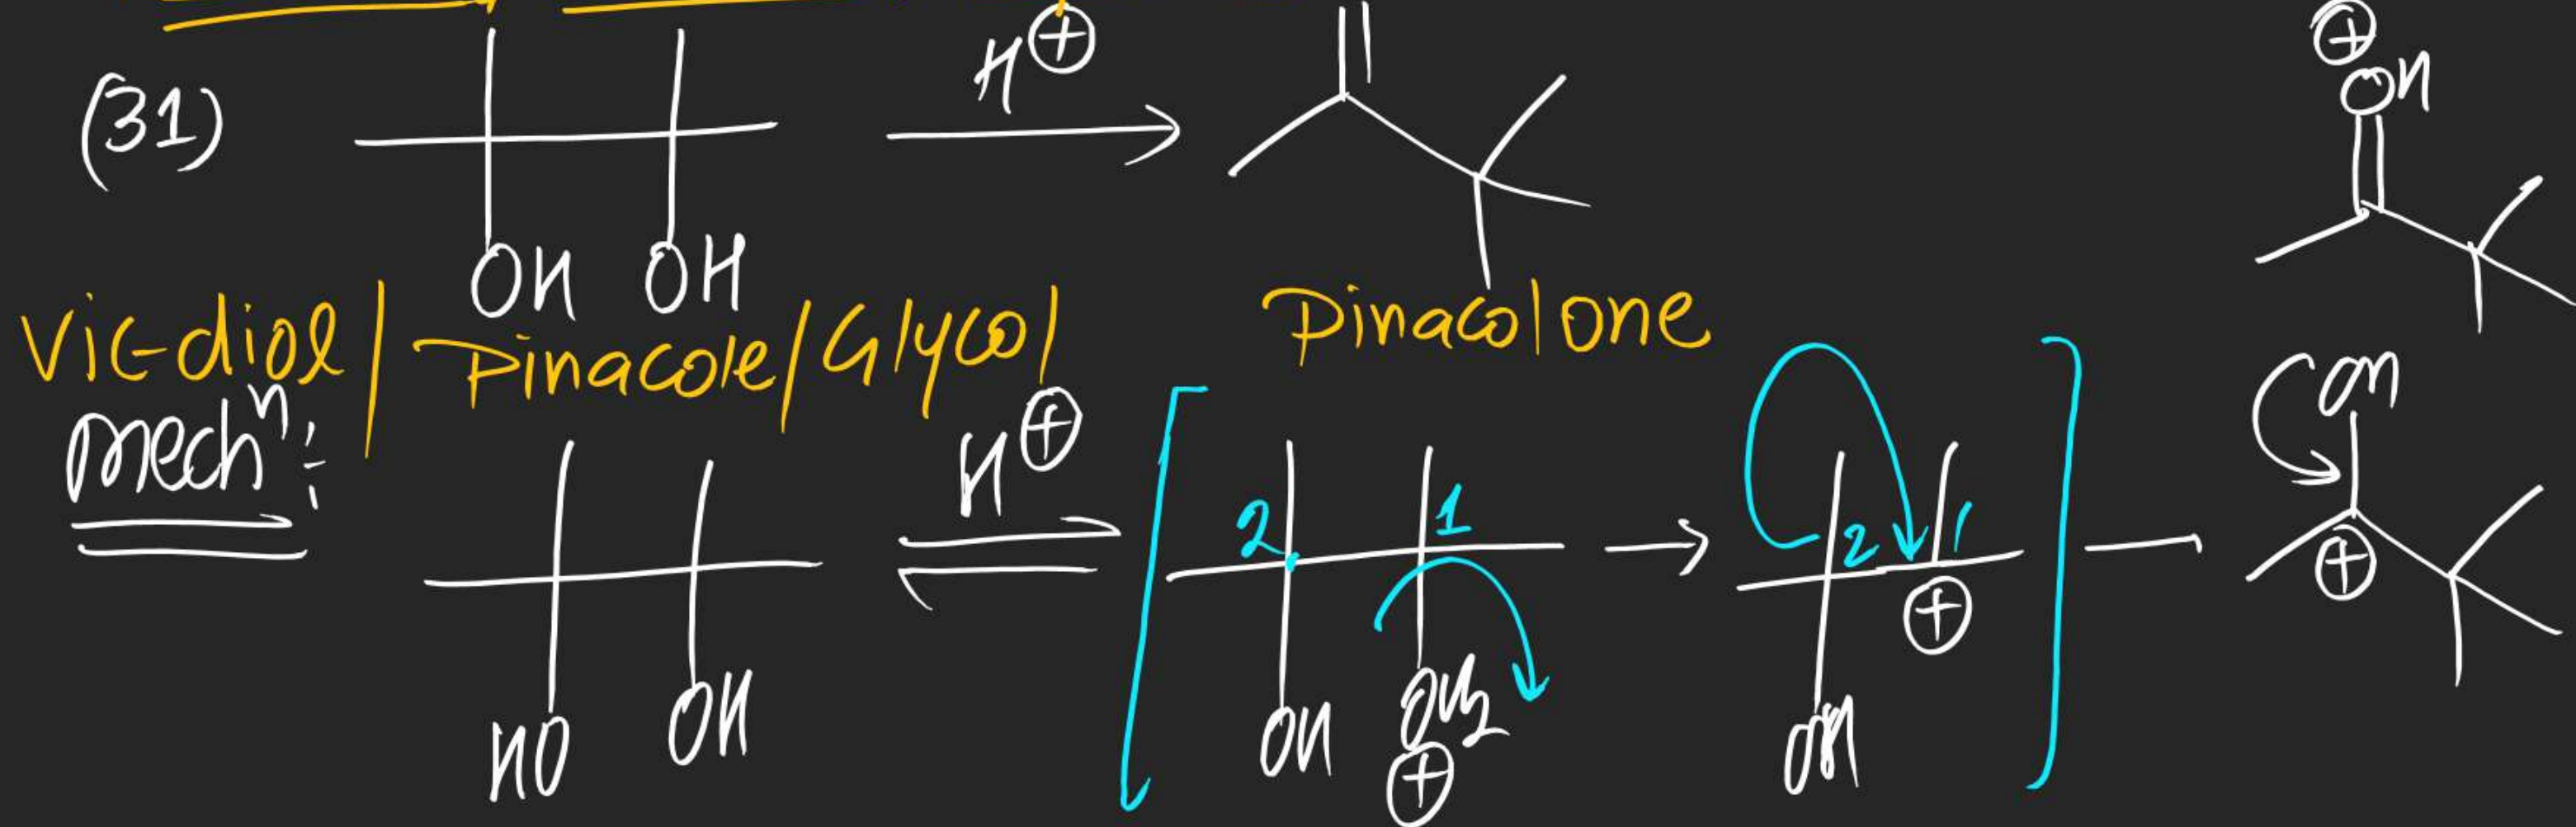 (31) H⊕ ⊕
OH
OH OH
Vic-diol / Pinacole/Glycol Pinacolone
mechⁿ:
H⊕ OH
2 1 2 1 ⊕
⊕
HO OH OH OH₂ OH
⊕